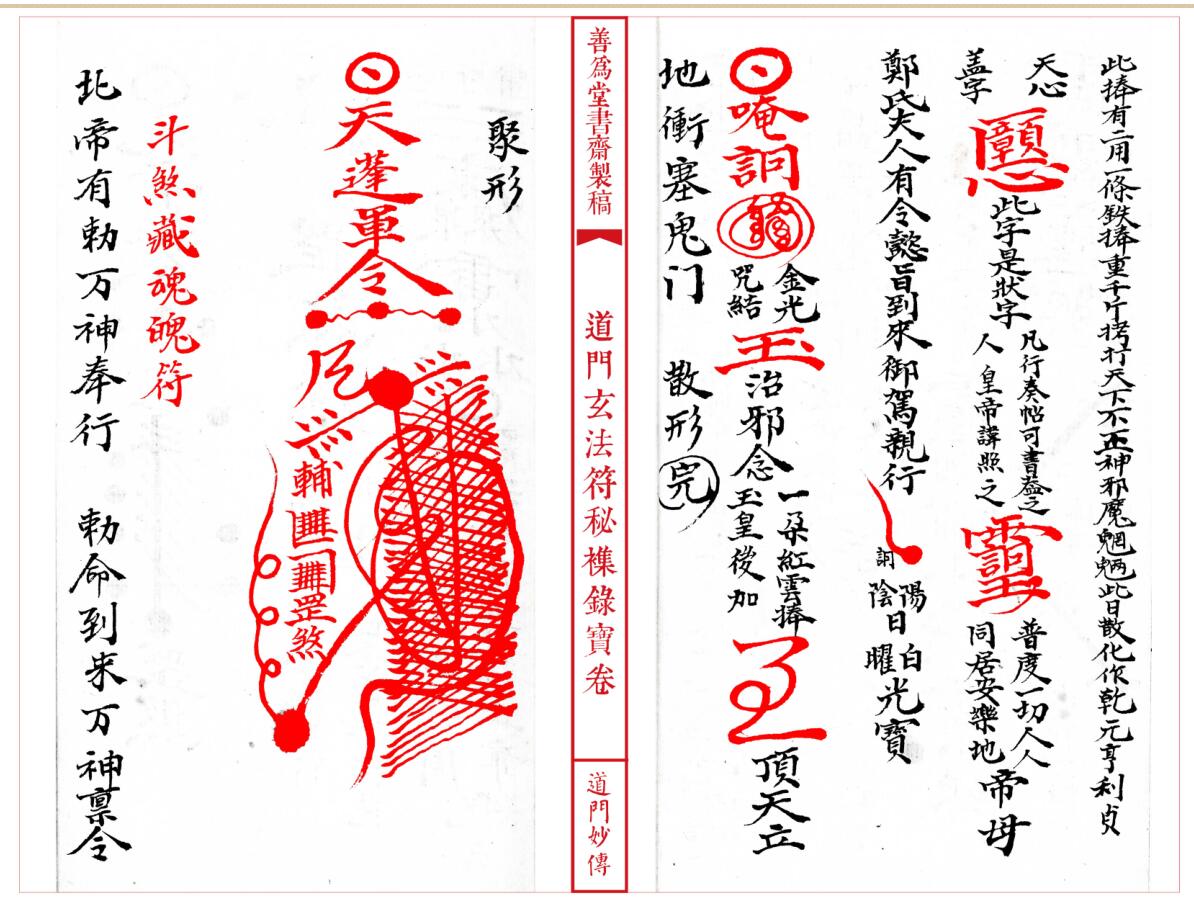 此捧有二用一條鉄捧重千斤拷打天下不正神邪魔魍魎此日散化作乾元亨利貞
天心
盖字
此字是狀字
凡行奏帖可書益之
人皇帝講照之
普度一切人人
同居安樂地
帝母
鄭氏夫人有令懿旨到來御駕親行
詷
陽
陰
日
白
曜
光寶
唵詷
金光
咒結
玉
治邪念
一朶紅雲捧
玉皇後加
頂天立
地衝塞鬼门 散形 完
善爲堂書齋製稿
道門玄法符秘㯲錄寶卷
道門妙傳
聚形
天蓬軍令
輔
罡煞
斗煞藏魂魄符
北帝有勅万神奉行 勅命到来万神禀令